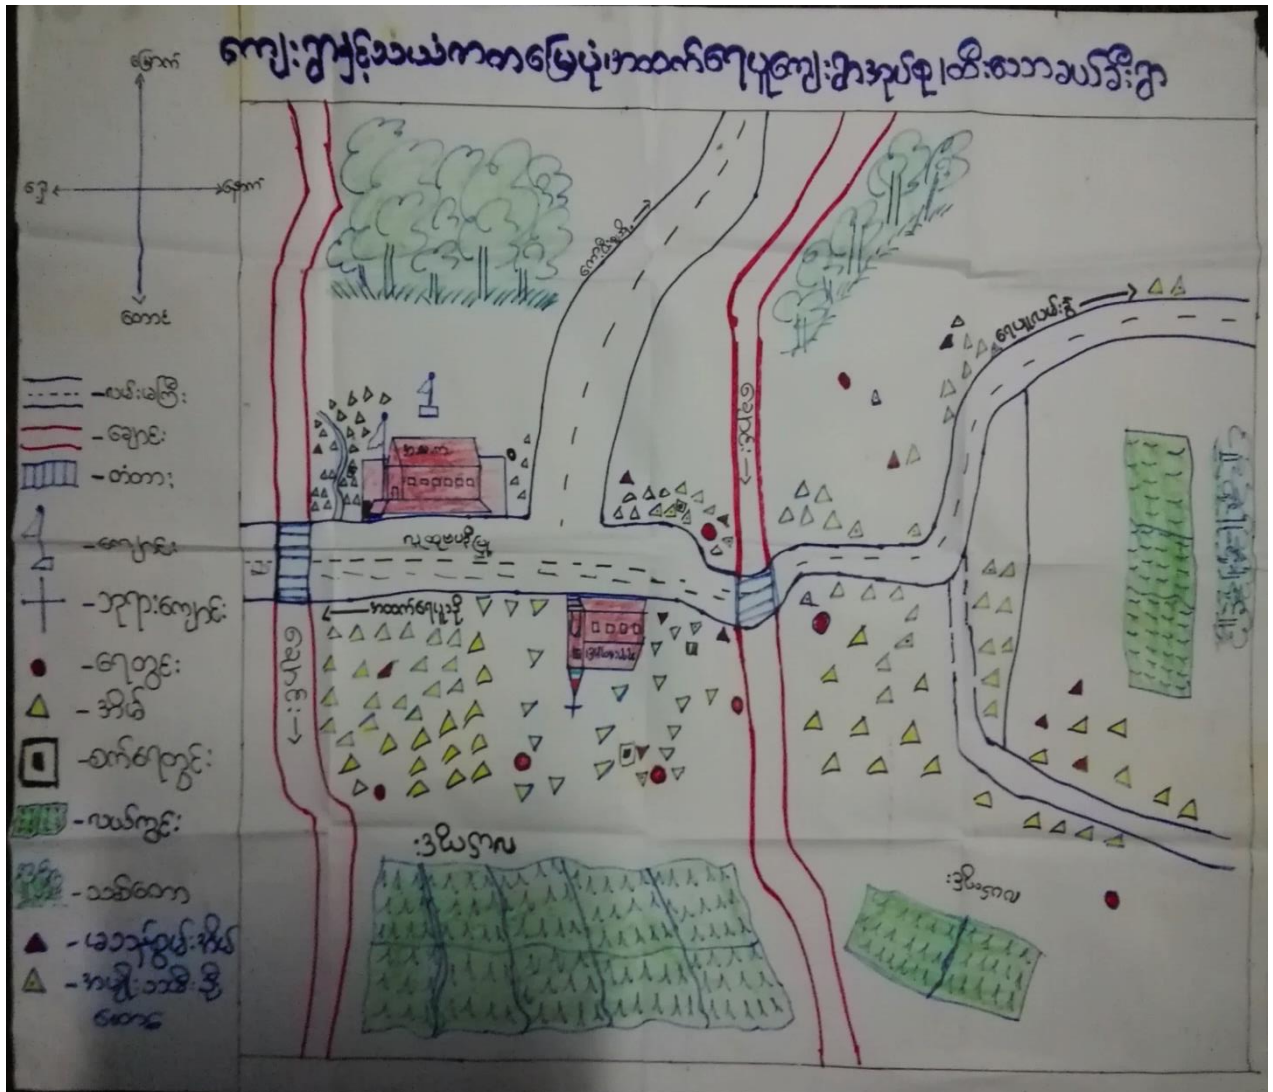 ကျေးရွာနှင့်သယံဇာတမြေပုံ၊အထက်ရေပူကျေးရွာအုပ်စု၊ထီးသေဘယ်ခီးရွာ
မြောက်
အရှေ့
အနောက်
တောင်
-လမ်းမကြီး
-ချောင်း
-တံတား
-ကျောင်း
-ဘုရားကျောင်း
-ရေတွင်း
-အိမ်
-စက်ရေတွင်း
-လယ်ကွင်း
-သစ်တော
-မသန်စွမ်းအိမ်
-အမျိုးသမီးဦး
ရေပူလမ်းခွဲ
ချောင်း
အ.ထ.က
အထက်ရေပူသို့
ချောင်း
လယ်ကွင်း
လယ်ကွင်း